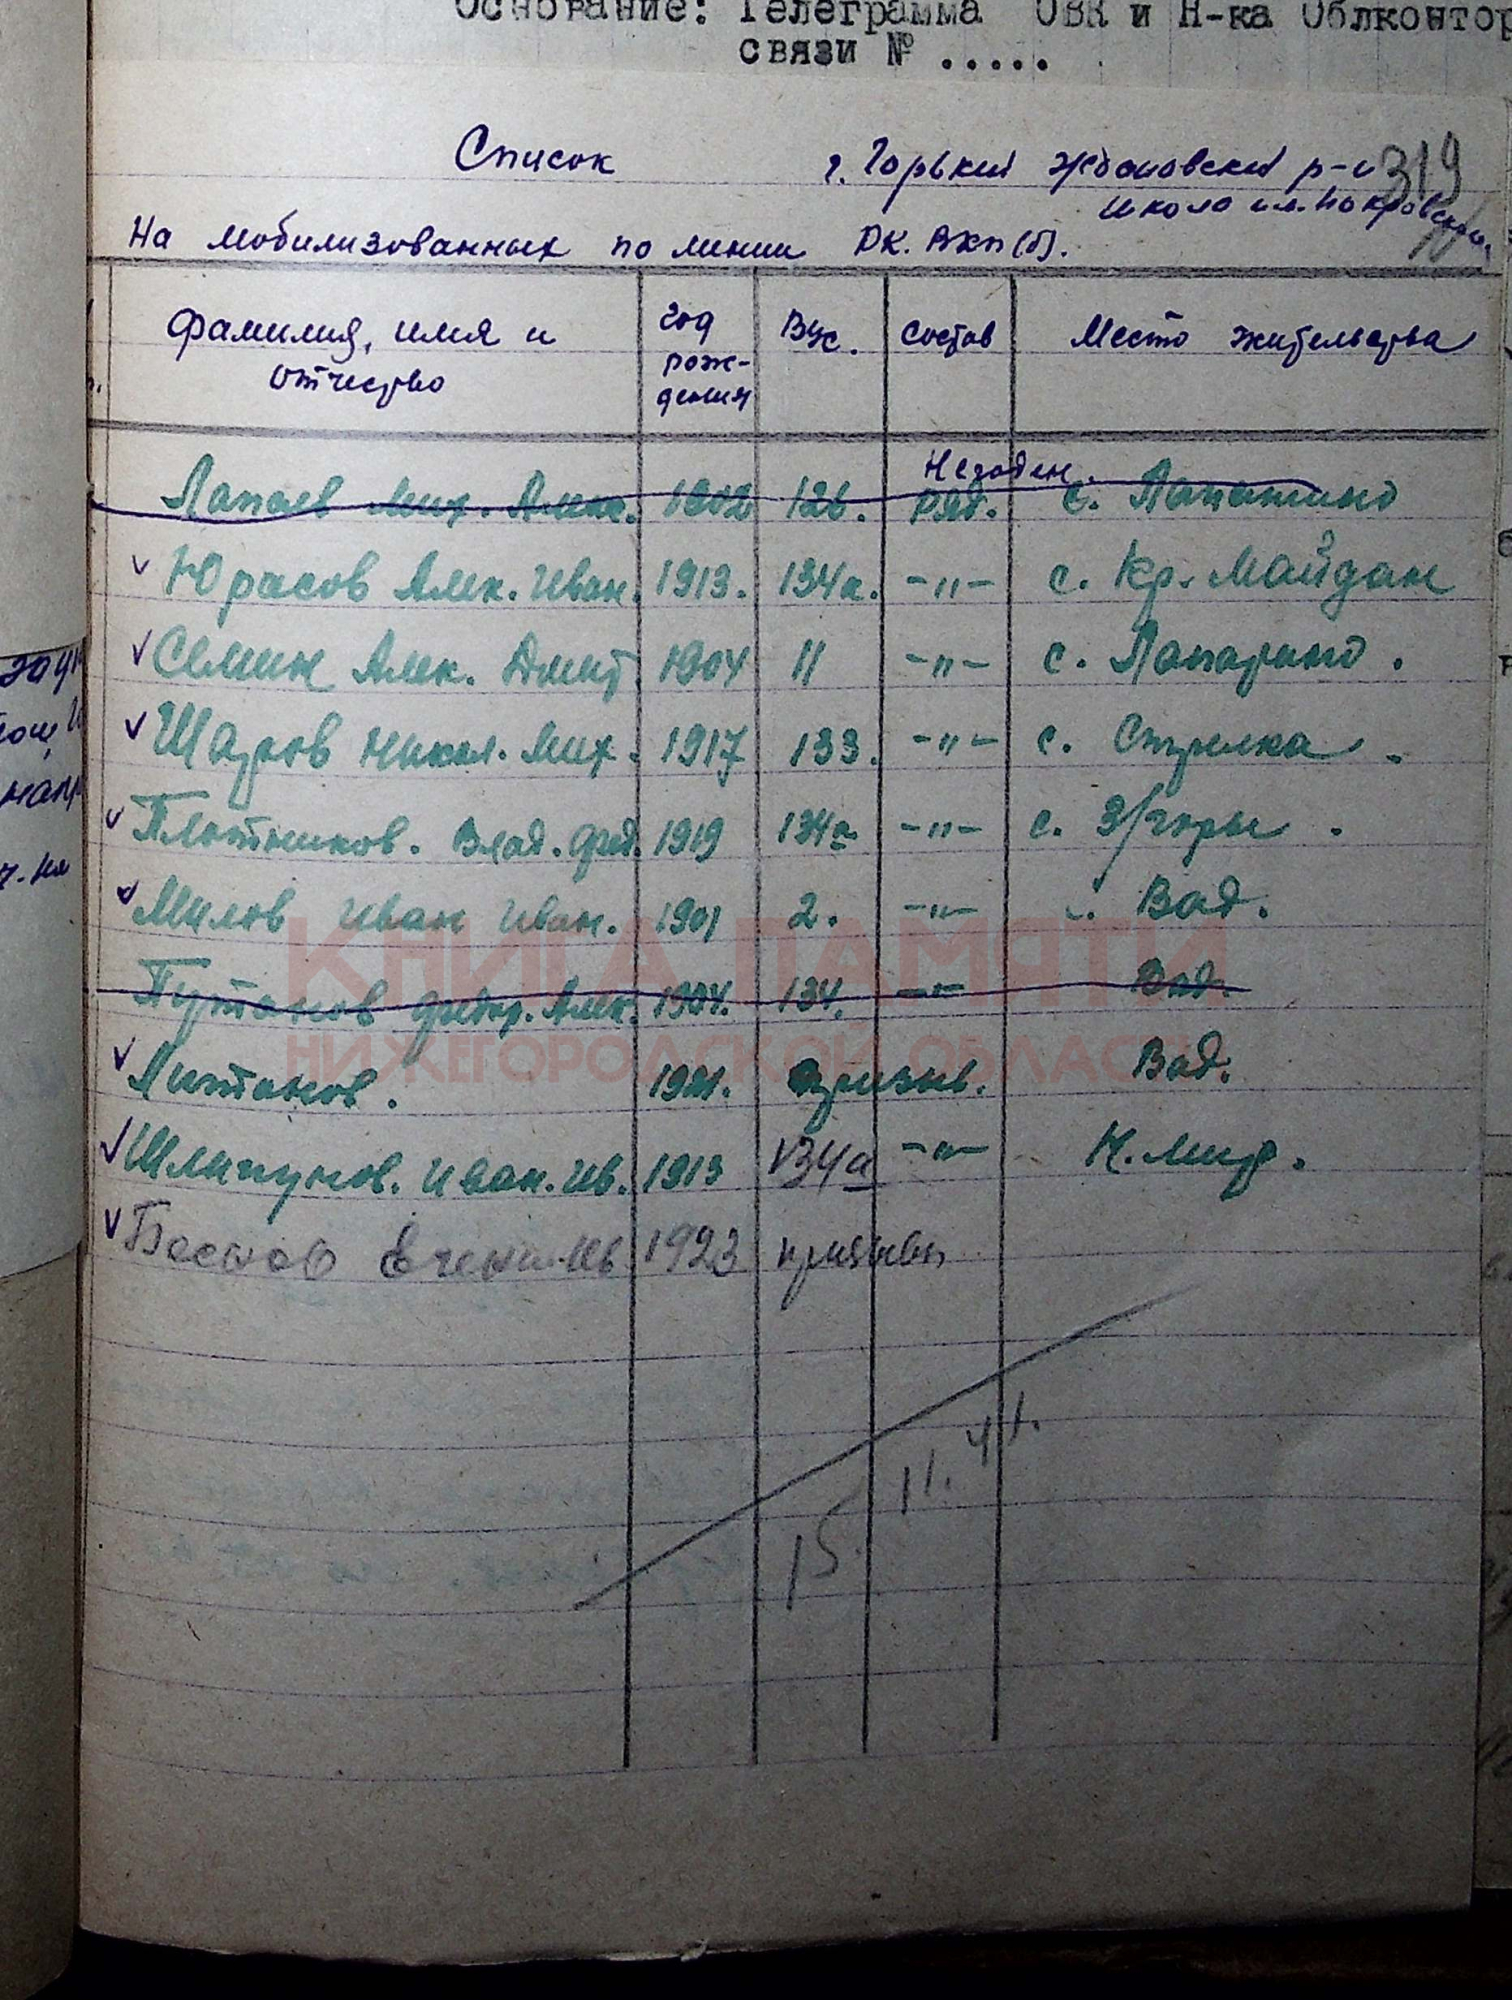 Основание: Телеграмма ОВК и Н-ка Облконтор
связи № .....
Список г. Горький Ждановский р-н 319
школа им. Покровского
На мобилизованных по линии РК. ВКП(б).
Фамилия, имя и отчество год рождения ВУС. состав Место жительства
Негоден.
Лапаев Мих. Алек. 1902 126. ряд. с. Лопатино
Юрасов Алек. Иван. 1913. 134а. -"- с. Кр. Майдан
Семин Алек. Дмит 1904 11 -"- с. Лопатино.
Шадров Никол. Мих. 1917 133. -"- с. Стрелка.
Плотников. Влад. Фед. 1919 134а -"- с. З/горы.
Милов Иван Иван. 1901 2. -"- Вад.
Алек. 1904. 134. -"- Вад.
1921. призыв. Вад.
Шляпунов. Иван. Ив. 1913 134а -"- Н. Мир.
Ив 1923 призывн
15. 11. 41.
КНИГА ПАМЯТИ
НИЖЕГОРОДСКОЙ ОБЛАСТИ